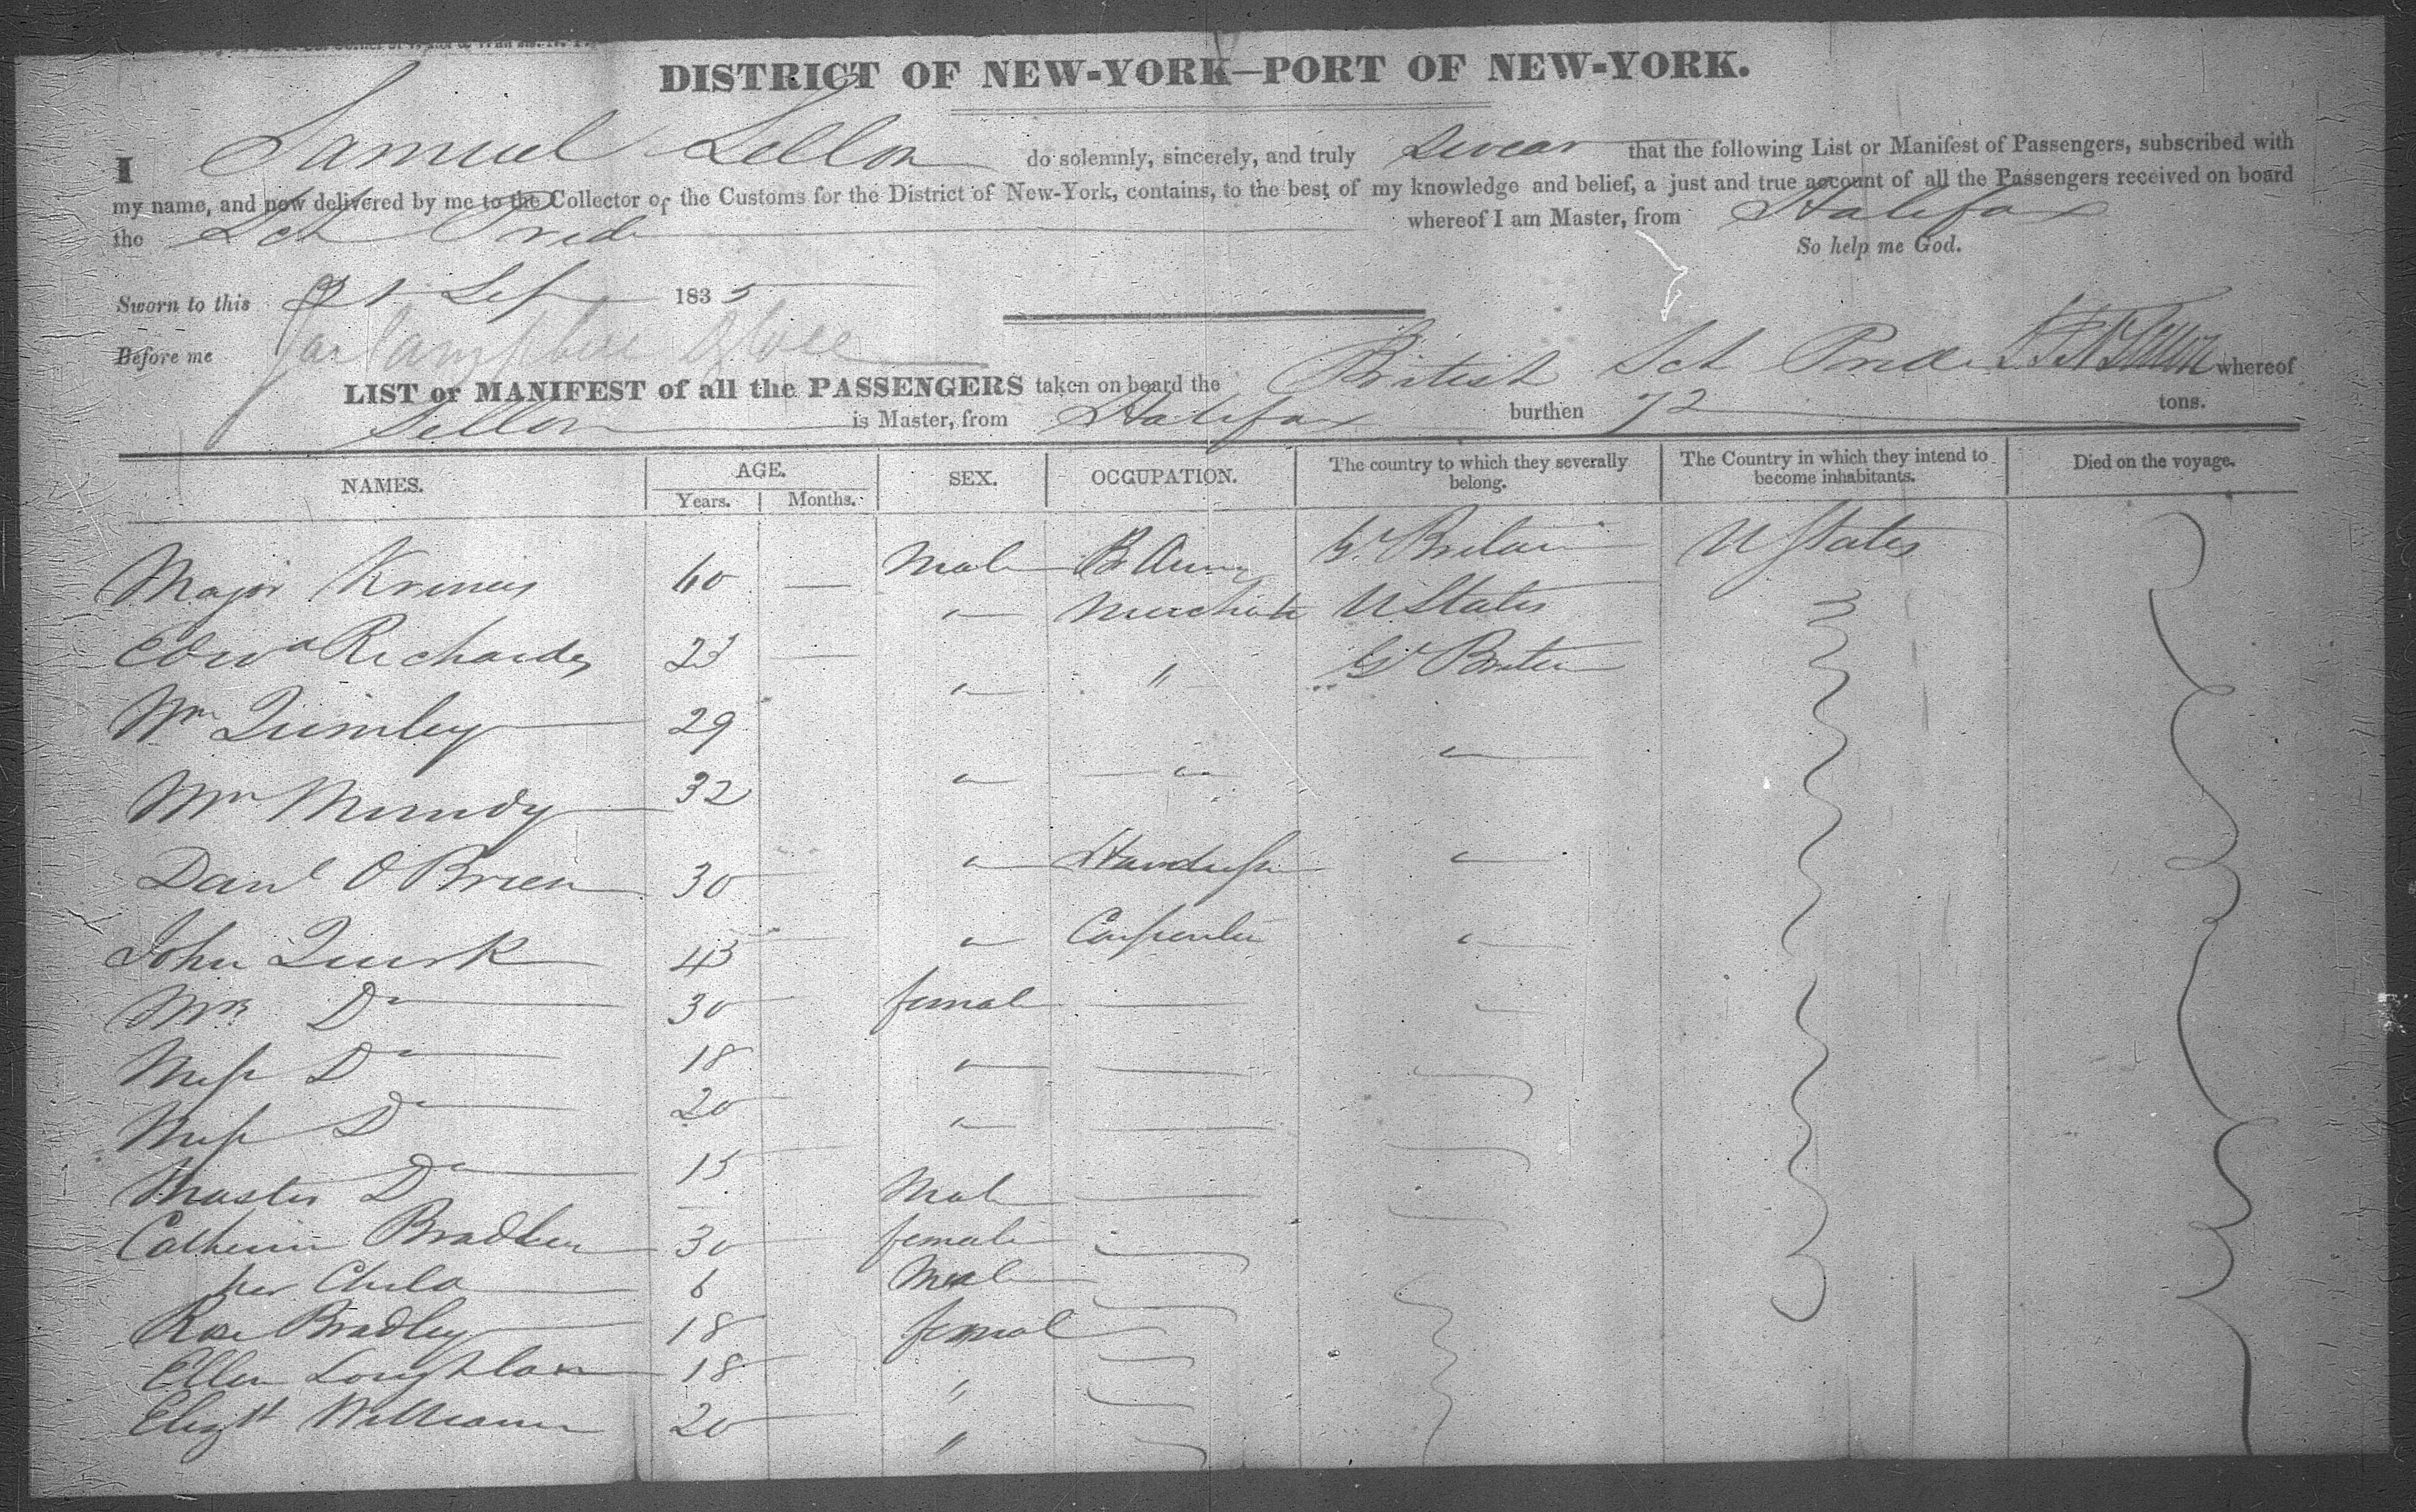 DISTRICT OF NEW-YORK—PORT OF NEW-YORK.
I Samuel Sellon do solemnly, sincerely, and truly Swear that the following List or Manifest of Passengers, subscribed with
my name, and now delivered by me to the Collector of the Customs for the District of New-York, contains, to the best of my knowledge and belief, a just and true account of all the Passengers received on board
the Sch Pride whereof I am Master, from Halifax
So help me God.
Sworn to this 21 Sep 1835
Before me
LIST or MANIFEST of all the PASSENGERS taken on board the British Sch Pride whereof
Sellon is Master, from Halifax burthen 72 tons.
NAMES. AGE. Years. Months. SEX. OCCUPATION. The country to which they severally belong. The Country in which they intend to become inhabitants. Died on the voyage.
Major 60 — Male B Army Gt Britain U States
Edwd Richards 23 — " Merchant U States
Wm 29 " " Gt Britain
Mr Mundy 32 " " "
Danl O Brien 30 " "
John Quirk 45 " Carpenter "
Mrs Do 30 female — "
Miss Do 18 " —
Miss Do 20 " —
Master Do 15 Male —
Catherine 30 female
her Child 6 Male
Rose Bradley 18 female
Ellen 18 "
Elizth Williams 20 "